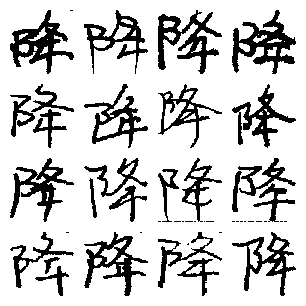 降降降降
降降降降
降降降降
降降降降